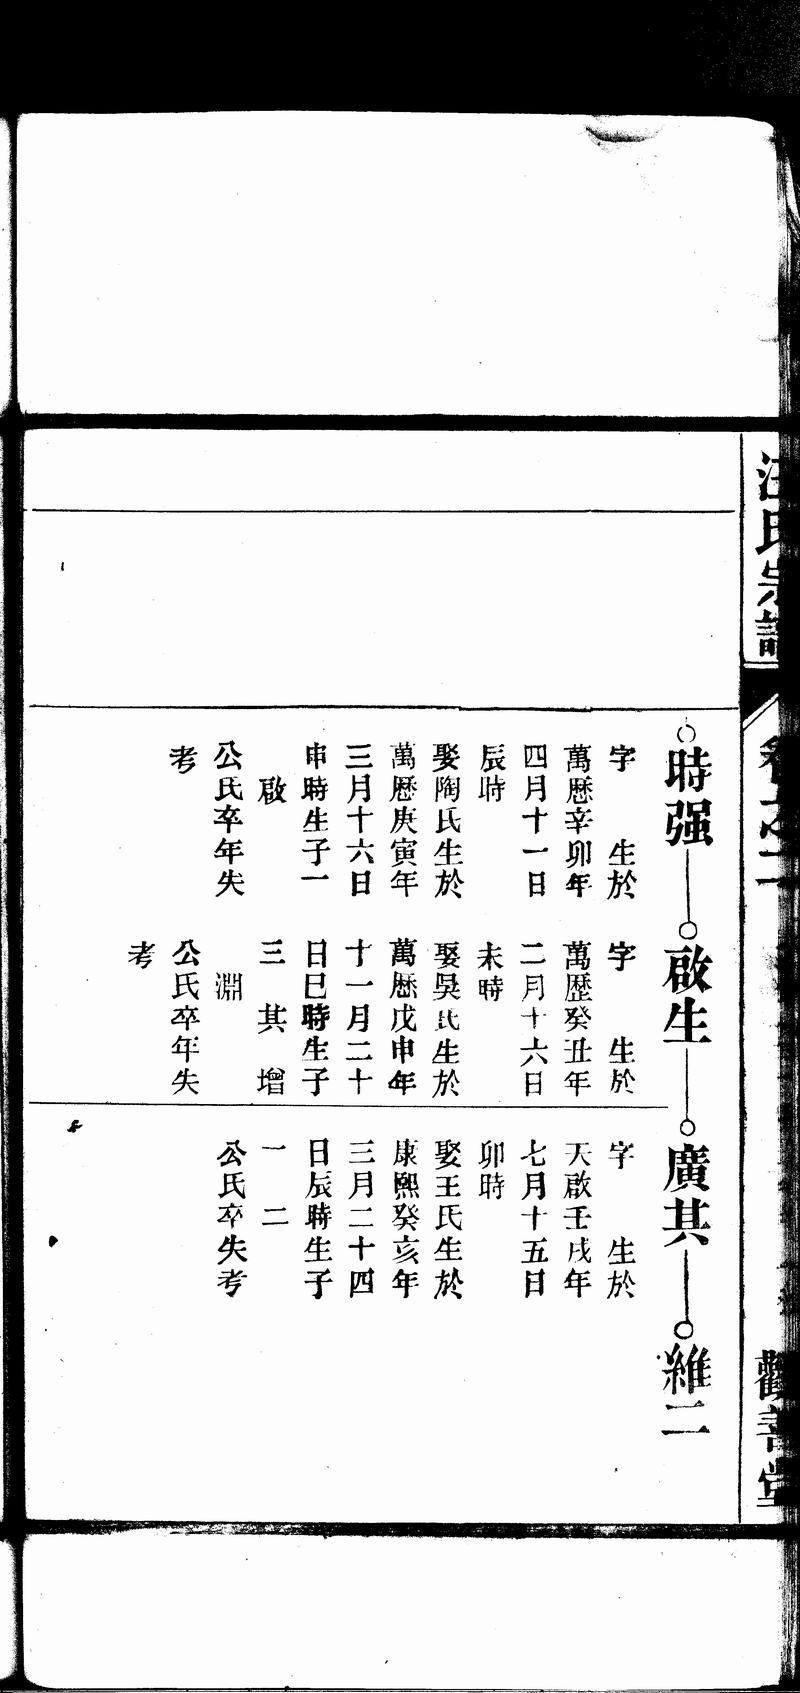 汪氏宗譜
觀善堂
時强
字　生於
萬歷辛卯年
四月十一日
辰時
娶陶氏生於
萬歷庚寅年
三月十六日
申時生子一
啟
公氏卒年失
考
啟生
字　生於
萬歷癸丑年
二月十六日
未時
娶吳氏生於
萬歷戊申年
十一月二十
日巳時生子
三 其 增
淵
公氏卒年失
考
廣其
字　生於
天啟壬戌年
七月十五日
卯時
娶王氏生於
康熙癸亥年
三月二十四
日辰時生子
一 二
公氏卒失考
維二